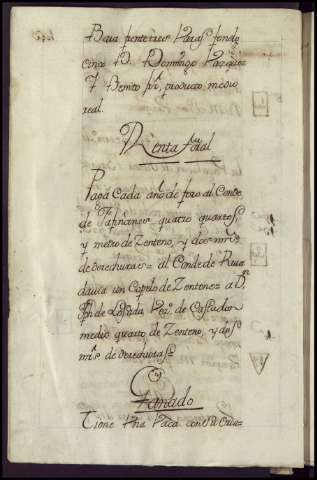 Baxa frente tres Varas fondo
cinco D. Domingo Vazquez
Y Benito fr.ª producto medio
real.
Renta foral
Paga Cada año de foro al Conde
de quatro quartos
y medio de Zenteno, y doce mrs.
de derechuras= al Conde de Riva
davia un Copelo de Zenteno= a Dn.
de Losada, Vez.º de
medio quarto de Zenteno, y dos
mrs. de derechuras=
Ganado
Tiene Una Vaca con su Cria=